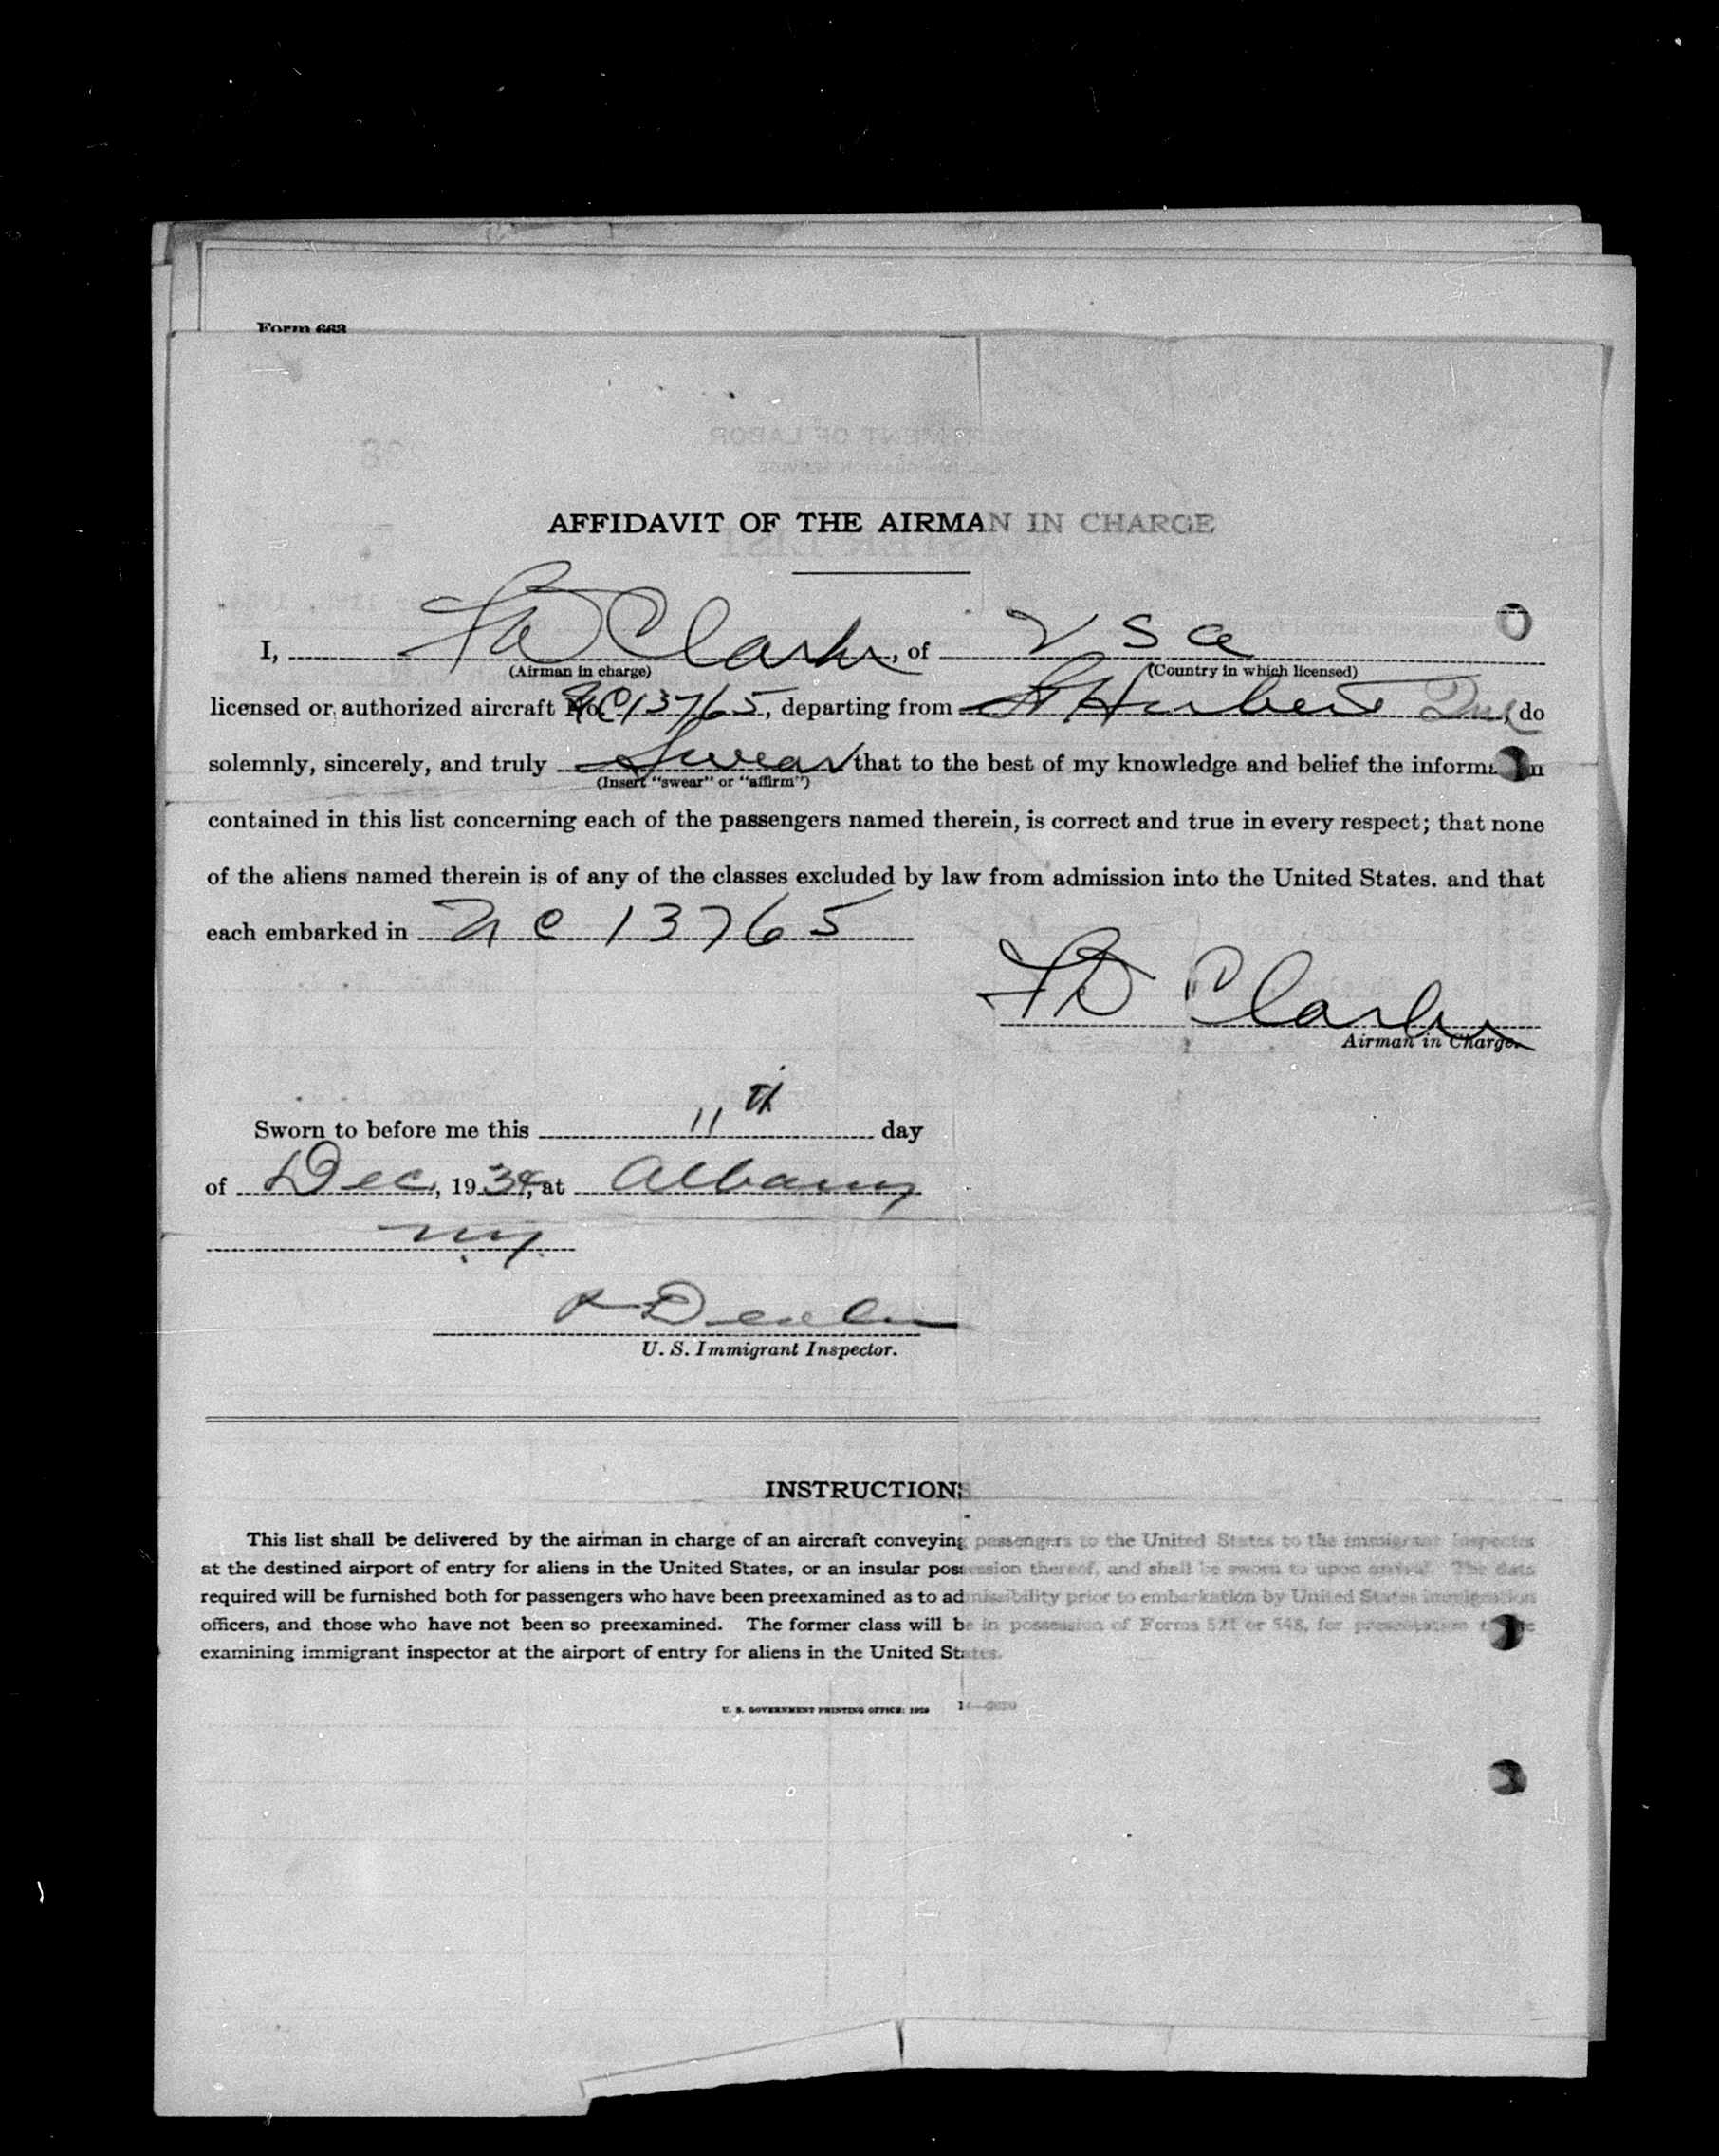 Form 663
AFFIDAVIT OF THE AIRMAN IN CHARGE
I, F D Clark, of U S A
(Airman in charge) (Country in which licensed)
licensed or authorized aircraft No. NC13765, departing from St Hubert Que, do
solemnly, sincerely, and truly Swear that to the best of my knowledge and belief the information
(Insert "swear" or "affirm")
contained in this list concerning each of the passengers named therein, is correct and true in every respect; that none
of the aliens named therein is of any of the classes excluded by law from admission into the United States. and that
each embarked in NC 13765
F D Clark
Airman in Charge.
Sworn to before me this 11th day
of Dec, 1934, at Albany
N.Y.
U. S. Immigrant Inspector.
INSTRUCTIONS
This list shall be delivered by the airman in charge of an aircraft conveying passengers to the United States to the immigrant inspector
at the destined airport of entry for aliens in the United States, or an insular possession thereof, and shall be sworn to upon arrival. The data
required will be furnished both for passengers who have been preexamined as to admissibility prior to embarkation by United States immigration
officers, and those who have not been so preexamined. The former class will be in possession of Forms 521 or 548, for presentation to the
examining immigrant inspector at the airport of entry for aliens in the United States.
U. S. GOVERNMENT PRINTING OFFICE: 1929